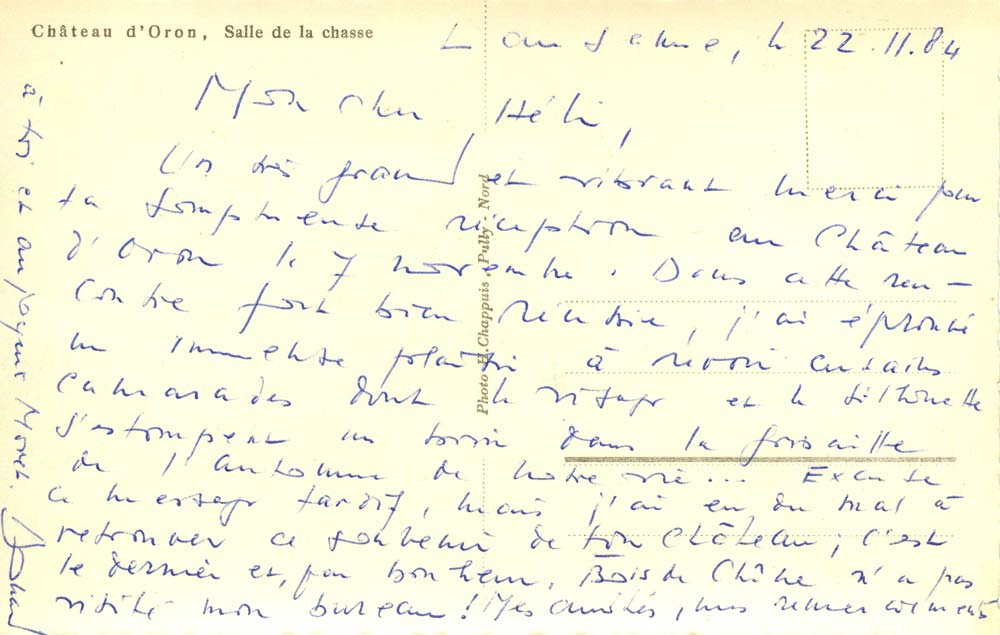 Château d'Oron, Salle de la chasse
Lausanne, le 22.11.84
Mon cher Héli,
Un très grand et vibrant merci pour
ta somptueuse réception au Château
d'Oron le 7 novembre. Dans cette ren-
contre fort bien réussie, j'ai éprouvé
un immense plaisir à revoir certains
camarades dont le visage et la silhouette
s'estompent un brin dans la grisaille
de l'automne de notre vie... Excuse
ce message tardif, mais j'ai eu du mal à
retrouver ce souvenir de ton Château; c'est
le dernier et, par bonheur, Bois de Chêne n'a pas
visité mon bureau! Mes amitiés, mes remerciements
à toi et au Moret.
Photo H. Chappuis, Pully-Nord